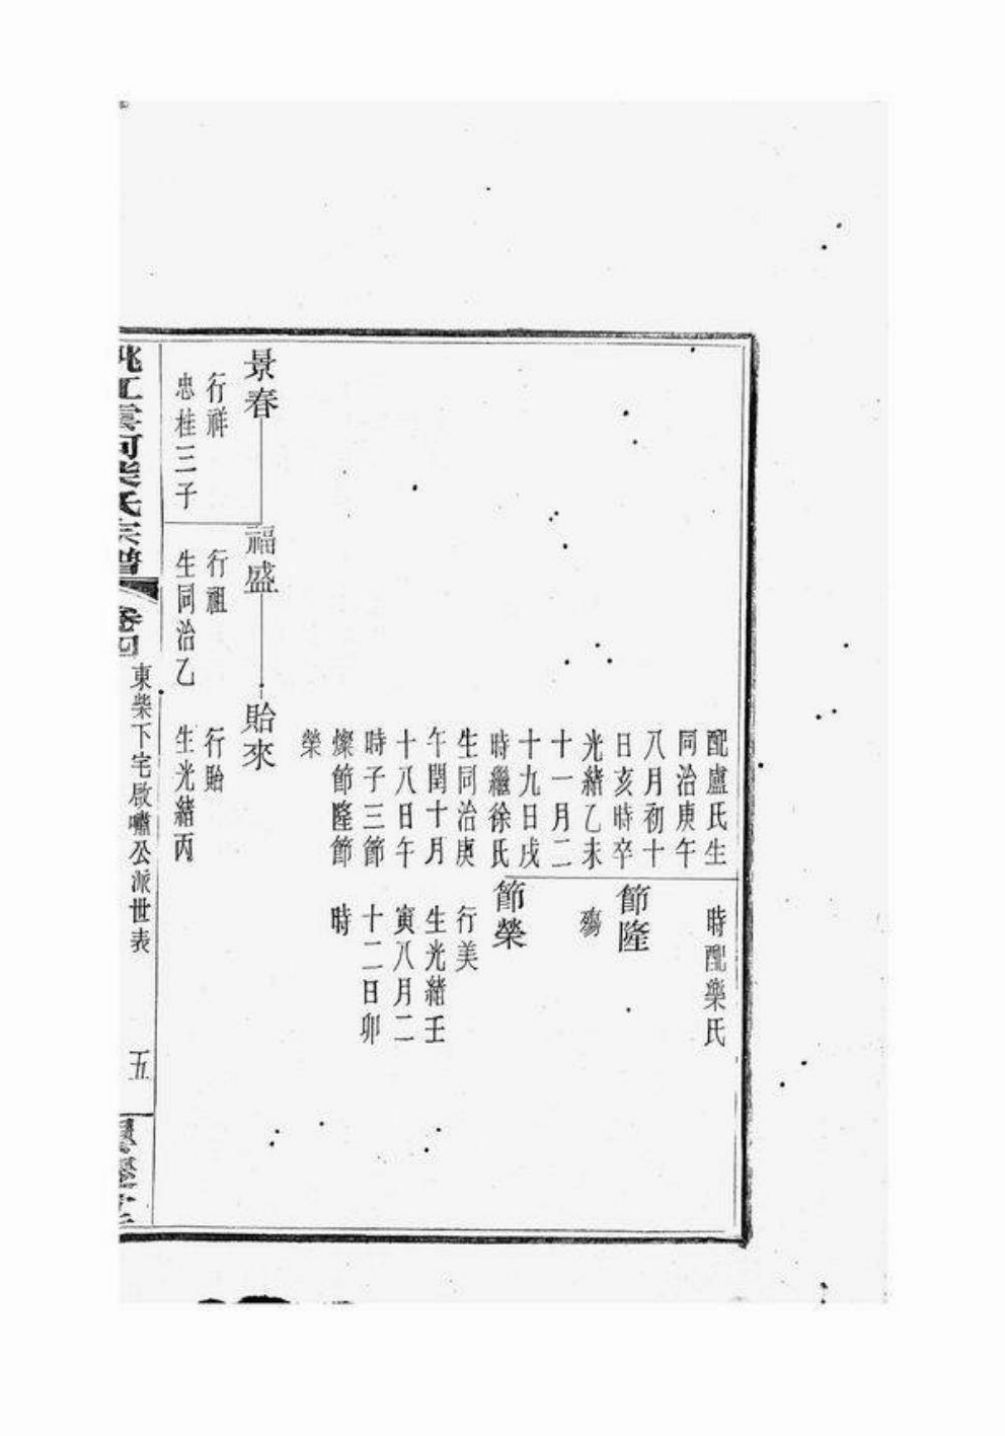 配盧氏生
同治庚午
八月初十
日亥時卒
光緒乙未
十一月二
十九日戌
時繼徐氏
生同治庚
午閏十月
十八日午
時子三節
燦節隆節
榮
時配樂氏
節隆
殤
節榮
行美
生光緒壬
寅八月二
十二日卯
時
景春
行祥
忠桂三子
福盛
行祖
生同治乙
貽來
行貽
生光緒丙
雲河柴氏宗譜
卷四
東柴下宅啟嘯公派世表
五